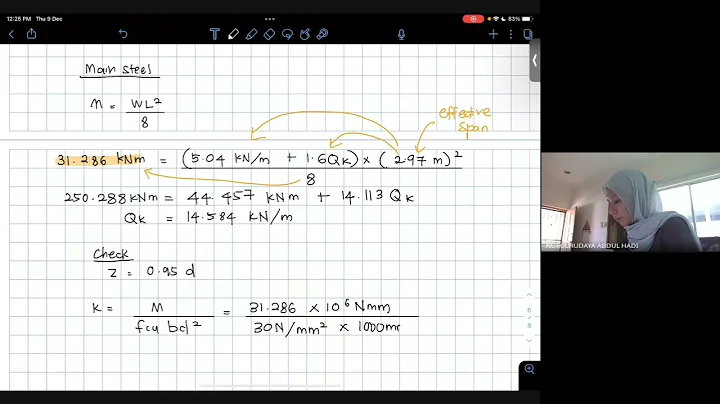 12:25 PM Thu 9 Dec
83%
Main steel
M = WL²
8
effective
span
31.286 kNm = (5.04 kN/m + 1.6Qk) × (2.97 m)²
8
250.288kNm = 44.457 kNm + 14.113 Qk
Qk = 14.584 kN/m
Check
Z = 0.95 d
K = M = 31.286 × 10⁶ Nmm
fcu bd² 30N/mm² × 1000mm
6
8